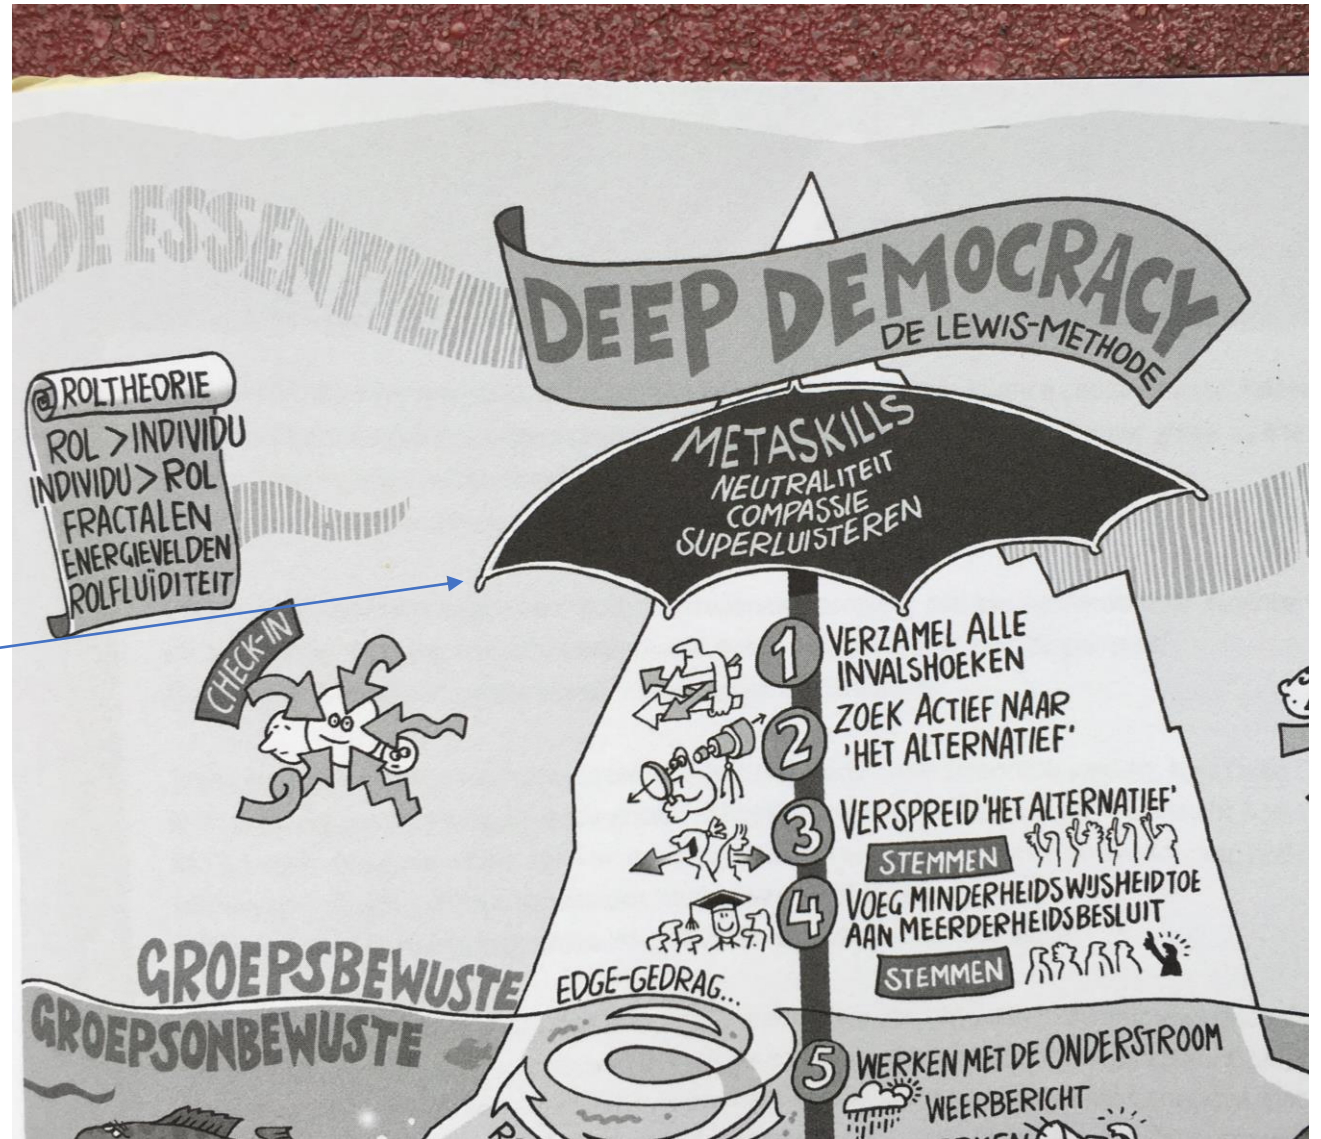 DE ESSENTIE
DEEP DEMOCRACY
DE LEWIS-METHODE
@ ROLTHEORIE
ROL > INDIVIDU
INDIVIDU > ROL
FRACTALEN
ENERGIEVELDEN
ROLFLUÏDITEIT
METASKILLS
NEUTRALITEIT
COMPASSIE
SUPERLUISTEREN
CHECK-IN
1 VERZAMEL ALLE
INVALSHOEKEN
2 ZOEK ACTIEF NAAR
'HET ALTERNATIEF'
3 VERSPREID 'HET ALTERNATIEF'
STEMMEN
4 VOEG MINDERHEIDSWIJSHEID TOE
AAN MEERDERHEIDSBESLUIT
STEMMEN
GROEPSBEWUSTE
EDGE-GEDRAG...
GROEPSONBEWUSTE
5 WERKEN MET DE ONDERSTROOM
WEERBERICHT